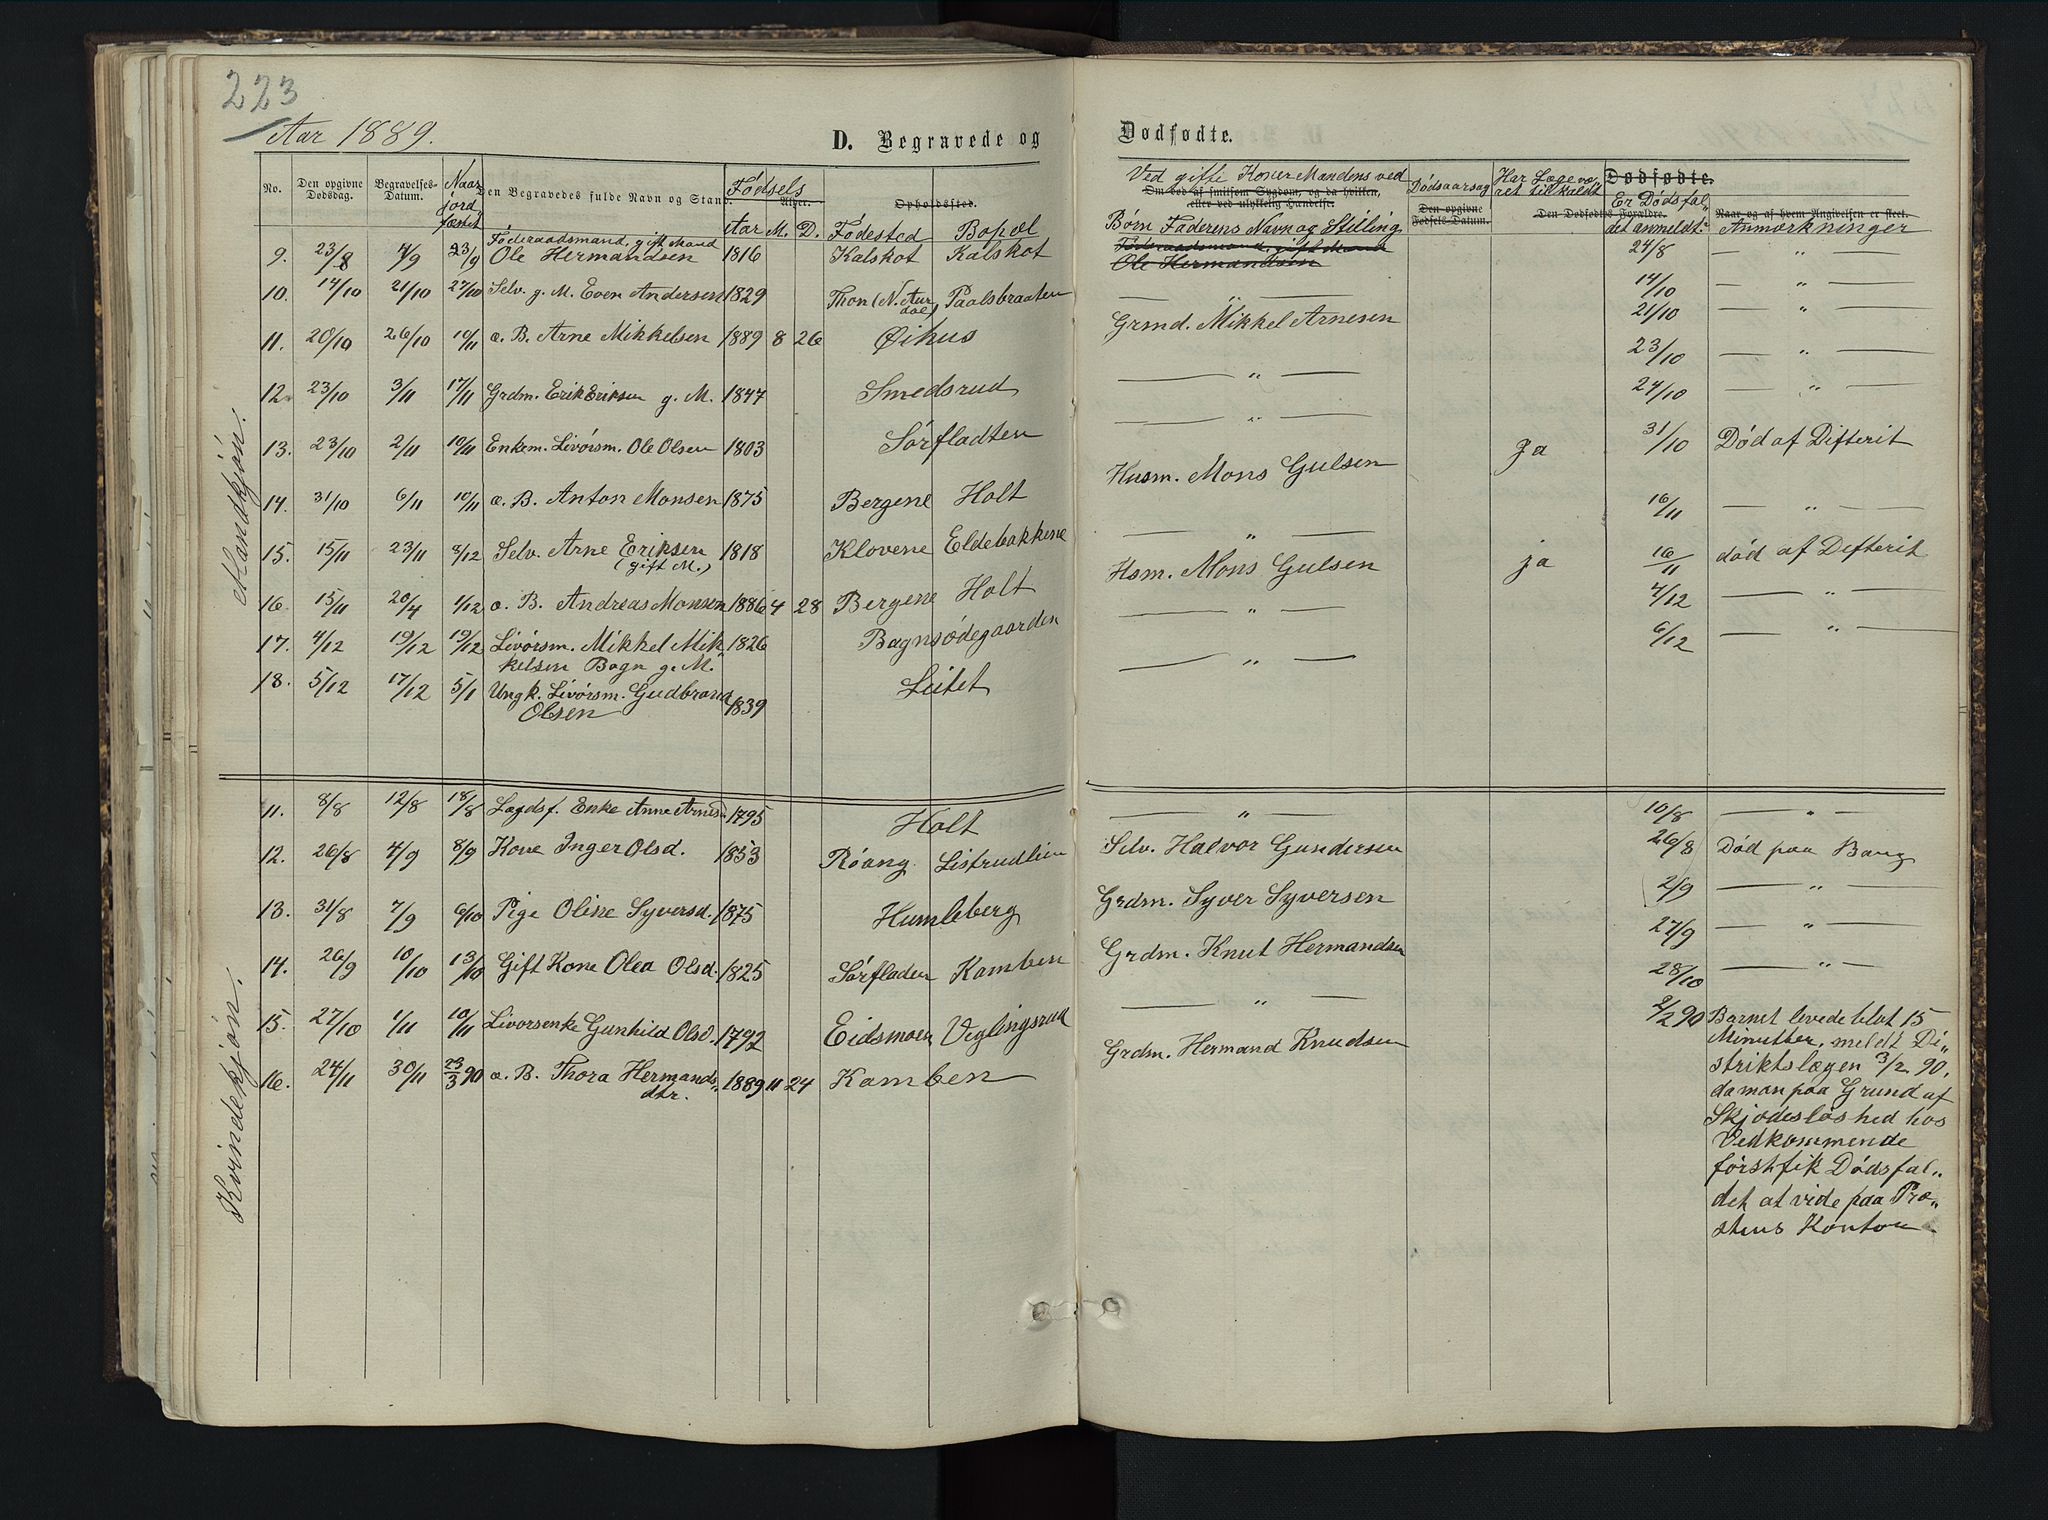 223
Aar 1889.
D. Begravede og Dødfødte.
No. Den opgivne Dødsdag. Begravelses-Datum. Naar jord fæstet Den Begravedes fulde Navn og Stand. Fødsels Alder. Opholdssted.
Aar M. D. Fødested Bopæl
Ved gifte Koner Mandens ved
Om død af smitsom Sygdom, og da hvilken,
eller ved ulykkelig Hændelse.
Børn Faderens Navn og Stilling
Dødsaarsag
Den opgivne Fødsels-Datum.
Har Læge væ
ret tilkaldt
Dødfødte.
Den Dødfødtes Forældre.
Er Dødsfal
det anmeldt.
Naar og af hvem Angivelsen er skeet.
Anmærkninger
Mandkjøn.
9. 23/8 4/9 23/9 Føderaadsmand, gift Mand
Ole Hermandsen 1816 Kalskot Kalskot Føderaadsmand, gift Mand
Ole Hermandsen 24/8 — " —
10. 14/10 21/10 27/10 Selv. g. M. Even Andersen 1829 Thon (N. Aur
dal) Paalsbraaten — " — 14/10 — " —
11. 20/10 26/10 10/11 æ. B. Arne Mikkelsen 1889 8 26 Øihus Grmd. Mikkel Arnesen 21/10 — " —
12. 23/10 3/11 17/11 Grdm. Erik Eriksen g. M. 1847 Smedsrud — " — 23/10 — " —
13. 23/10 2/11 10/11 Enkem. Livørsm. Ole Olsen 1803 Sørfladten — " — 24/10 — " —
14. 31/10 6/11 10/11 æ. B. Anton Monsen 1875 Bergene Holt Husm. Mons Gulsen Ja 31/10 Død af Difterit
15. 15/11 23/11 8/12 Selv. Arne Eriksen
(gift M.) 1818 Klovene Eldebakkene — " — 16/11 — " —
16. 15/11 20/4 1/12 æ. B. Andreas Monsen 1886 4 28 Bergene Holt Hsm. Mons Gulsen ja 16/11 død af Defterit
17. 4/12 19/12 19/12 Livørsm. Mikkel Mik
kelsen Bagn g. M. 1826 Bagnsødegaarden — " — 4/12 — " —
18. 5/12 17/12 5/1 Ungk. Livørsm. Gudbrand
Olsen 1839 Leitet — " — 6/12 — " —
Kvindekjøn.
11. 8/8 12/8 18/8 Lægdsf. Enke Anne Arnesd. 1795 Holt " 10/8 — " —
12. 26/8 4/9 8/9 Kone Inger Olsd. 1853 Røang Listrudlien Selv. Halvor Gundersen 26/8 Død paa Bang
13. 31/8 7/9 6/10 Pige Oline Syversd. 1875 Humleberg Grdm. Syver Syversen 2/9 — " —
14. 26/9 10/10 13/10 Gift Kone Olea Olsd. 1825 Sørfladen Kamben Grdm. Knut Hermandsen 27/9 — " —
15. 27/10 1/11 10/11 Livorsenke Gunhild Olsd. 1792 Eidsmoen Veglingsrud — " — 28/10 — " —
16. 24/11 30/11 23/3 90 æ. B. Thora Hermands,
dtr. 1889 11 24 Kamben Grdm. Hermand Knudsen 2/2 90 Barnet levede blot 15
Minutter, meldt Di„
striktslægen 3/2 90,
da man paa Grund af
Skjødesløshed hos
Vedkommende
først fik Dødsfal„
det at vide paa Præ„
stens Kontor